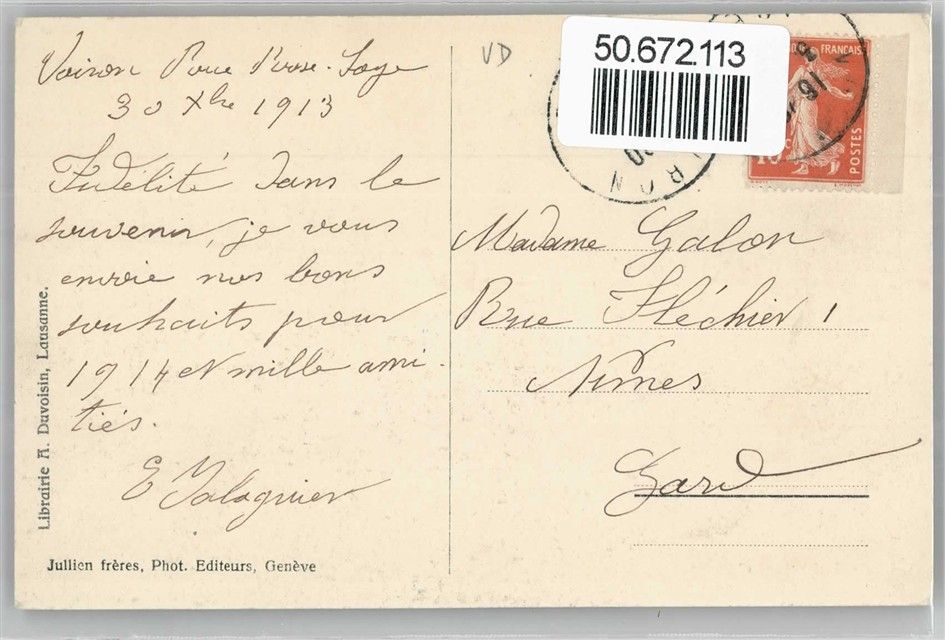 Voiron Rue Rose-Sage
30 Xbre 1913
Fidélité dans le
souvenir, je vous
envoie nos bons
souhaits pour
1914 et mille ami-
tiés.
E Jalaguier
Librairie A. Duvoisin, Lausanne.
Jullien frères, Phot. Editeurs, Genève
VD
50.672.113
FRANÇAIS
POSTES
10 c
16
30
RON
Madame Galon
Rue Fléchier 1
Nîmes
Gard